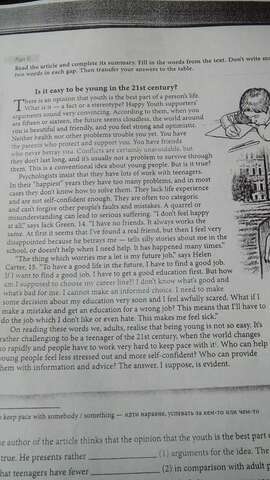 Part II
Read the article and complete its summary. Fill in the words from the text. Don't write more
two words in each gap. Then transfer your answers to the table.
Is it easy to be young in the 21st century?
There is an opinion that youth is the best part of a person's life.
What is it — a fact or a stereotype? Happy Youth supporters'
arguments sound very convincing. According to them, when you
are fifteen or sixteen, the future seems cloudless, the world around
you is beautiful and friendly, and you feel strong and optimistic.
Neither health nor other problems trouble you yet. You have
the parents who protect and support you. You have friends
who never betray you. Conflicts are certainly unavoidable, but
they don't last long, and it's usually not a problem to survive through
them. This is a conventional idea about young people. But is it true?
Psychologists insist that they have lots of work with teenagers.
In their "happiest" years they have too many problems, and in most
cases they don't know how to solve them. They lack life experience
and are not self-confident enough. They are often too categoric
and can't forgive other people's faults and mistakes. A quarrel or
misunderstanding can lead to serious suffering. "I don't feel happy
at all," says Jack Green, 14. "I have no friends. It always works the
same. At first it seems that I've found a real friend, but then I feel very
disappointed because he betrays me — tells silly stories about me in the
school, or doesn't help when I need help. It has happened many times."
"The thing which worries me a lot is my future job," says Helen
Carter, 15. "To have a good life in the future, I have to find a good job.
If I want to find a good job, I have to get a good education first. But how
am I supposed to choose my career line? I don't know what's good and
what's bad for me. I cannot make an informed choice. I need to make
some decision about my education very soon and I feel awfully scared. What if I
make a mistake and get an education for a wrong job? This means that I'll have to
do the job which I don't like or even hate. This makes me feel sick."
On reading these words we, adults, realise that being young is not so easy. It's
rather challenging to be a teenager of the 21st century, when the world changes
so rapidly and people have to work very hard to keep pace with it¹. Who can help
young people feel less stressed out and more self-confident? Who can provide
them with information and advice? The answer, I suppose, is evident.
keep pace with somebody / something — идти наравне, успевать за кем-то или чем-то
The author of the article thinks that the opinion that the youth is the best part
true. He presents rather (1) arguments for the idea. The
that teenagers have fewer (2) in comparison with adult